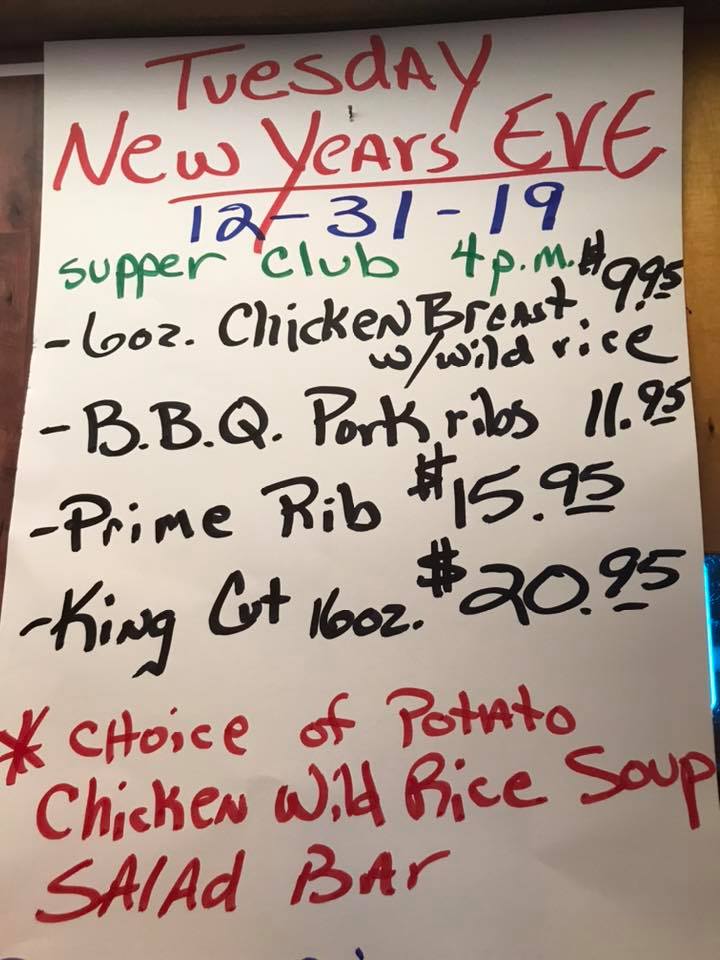 Tuesday
New Years Eve
12-31-19
supper club 4p.m.
-6oz. Chicken Breast $9.95
w/wild rice
-B.B.Q. Pork ribs 11.95
-Prime Rib $15.95
-King Cut 16oz. $20.95
* Choice of Potato
Chicken Wild Rice Soup
Salad Bar